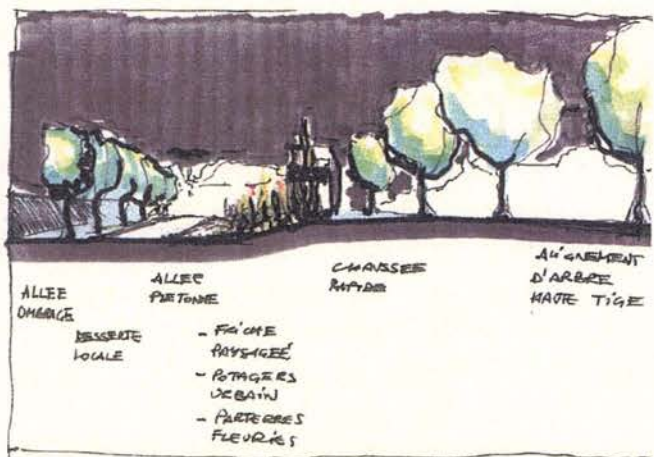 ALLEE
OMBRAGE
DESSERTE
LOCALE
ALLEE
PIETONNE
- FRICHE
PAYSAGEÉ
- POTAGERS
URBAIN
- PARTERRES
FLEURIES
CHAUSSEE
RAPIDE
ALIGNEMENT
D'ARBRE
HAUTE TIGE